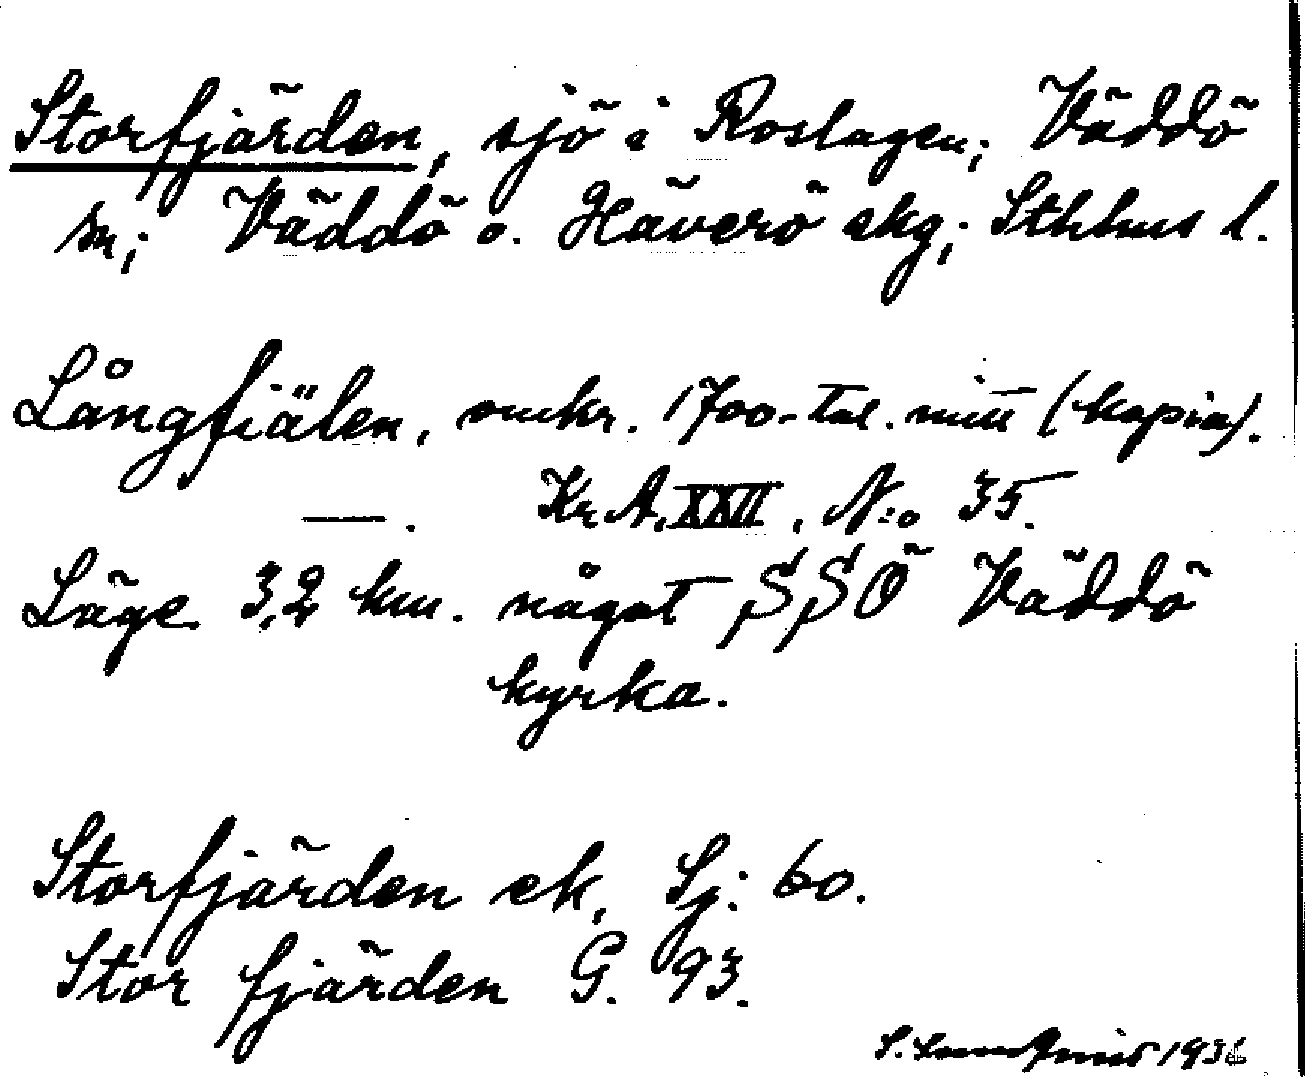 Storfjärden, sjö i Roslagen; Väddö
sn; Väddö o. Häverö skg; Sthlms l.
Långfiälen, omkr. 1700-tal. mitt (kopia).
—. Kr A. XXII, N:o 35.
Läge 3,2 km. något SSÖ Väddö
kyrka.
Storfjärden ek, Sj: 60.
Stor fjärden G. 93.
S. 1936